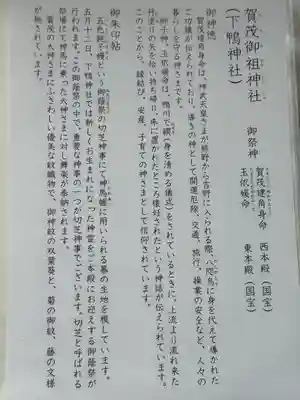 賀茂御祖神社
（下鴨神社）
御祭神
賀茂建角身命 西本殿（国宝）
玉依媛命 東本殿（国宝）
御神徳
賀茂建角身命は、神武天皇さまが熊野から吉野に入られる際、八咫烏に身を代えて導かれた
ご功績が伝えられており、導きの神として開運厄除、交通、旅行、操業の安全など、人々の
暮らしを守る神さまです。
御子神、玉依媛命は、鴨川で禊（身を清める儀式）をされているときに、上流より流れ来た
丹塗の矢を拾い持ち帰り、床に置かれたところ懐妊されたという神話が伝えられています。
このことから、縁結び、安産、子育ての神さまとして信仰されています。
御朱印帖
五色絁を纏という御蔭祭の切芝神事にて神馬幄に用いられる幕の生地を模しています。
五月十二日、下鴨神社では新しくお生まれになった神霊をご本殿にお迎えする御蔭祭が
行われます。この御蔭祭の中で、重要な神事の一つが切芝神事でございます。切芝と呼ばれる
祭場にて神馬に乗った大神さまに対し舞楽が奉納されます。
賀茂の大神さまにふさわしい優美な紋織物で、御神紋の双葉葵と、菊の御紋、藤の文様
が施されています。